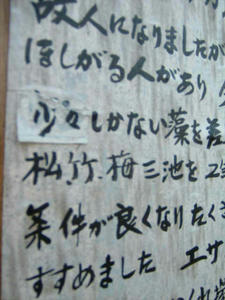 故人になりましたが
ほしがる人があり
少々しかない藻を差
松、竹、梅三池を
条件が良くなりたくさ
すすめました エサ